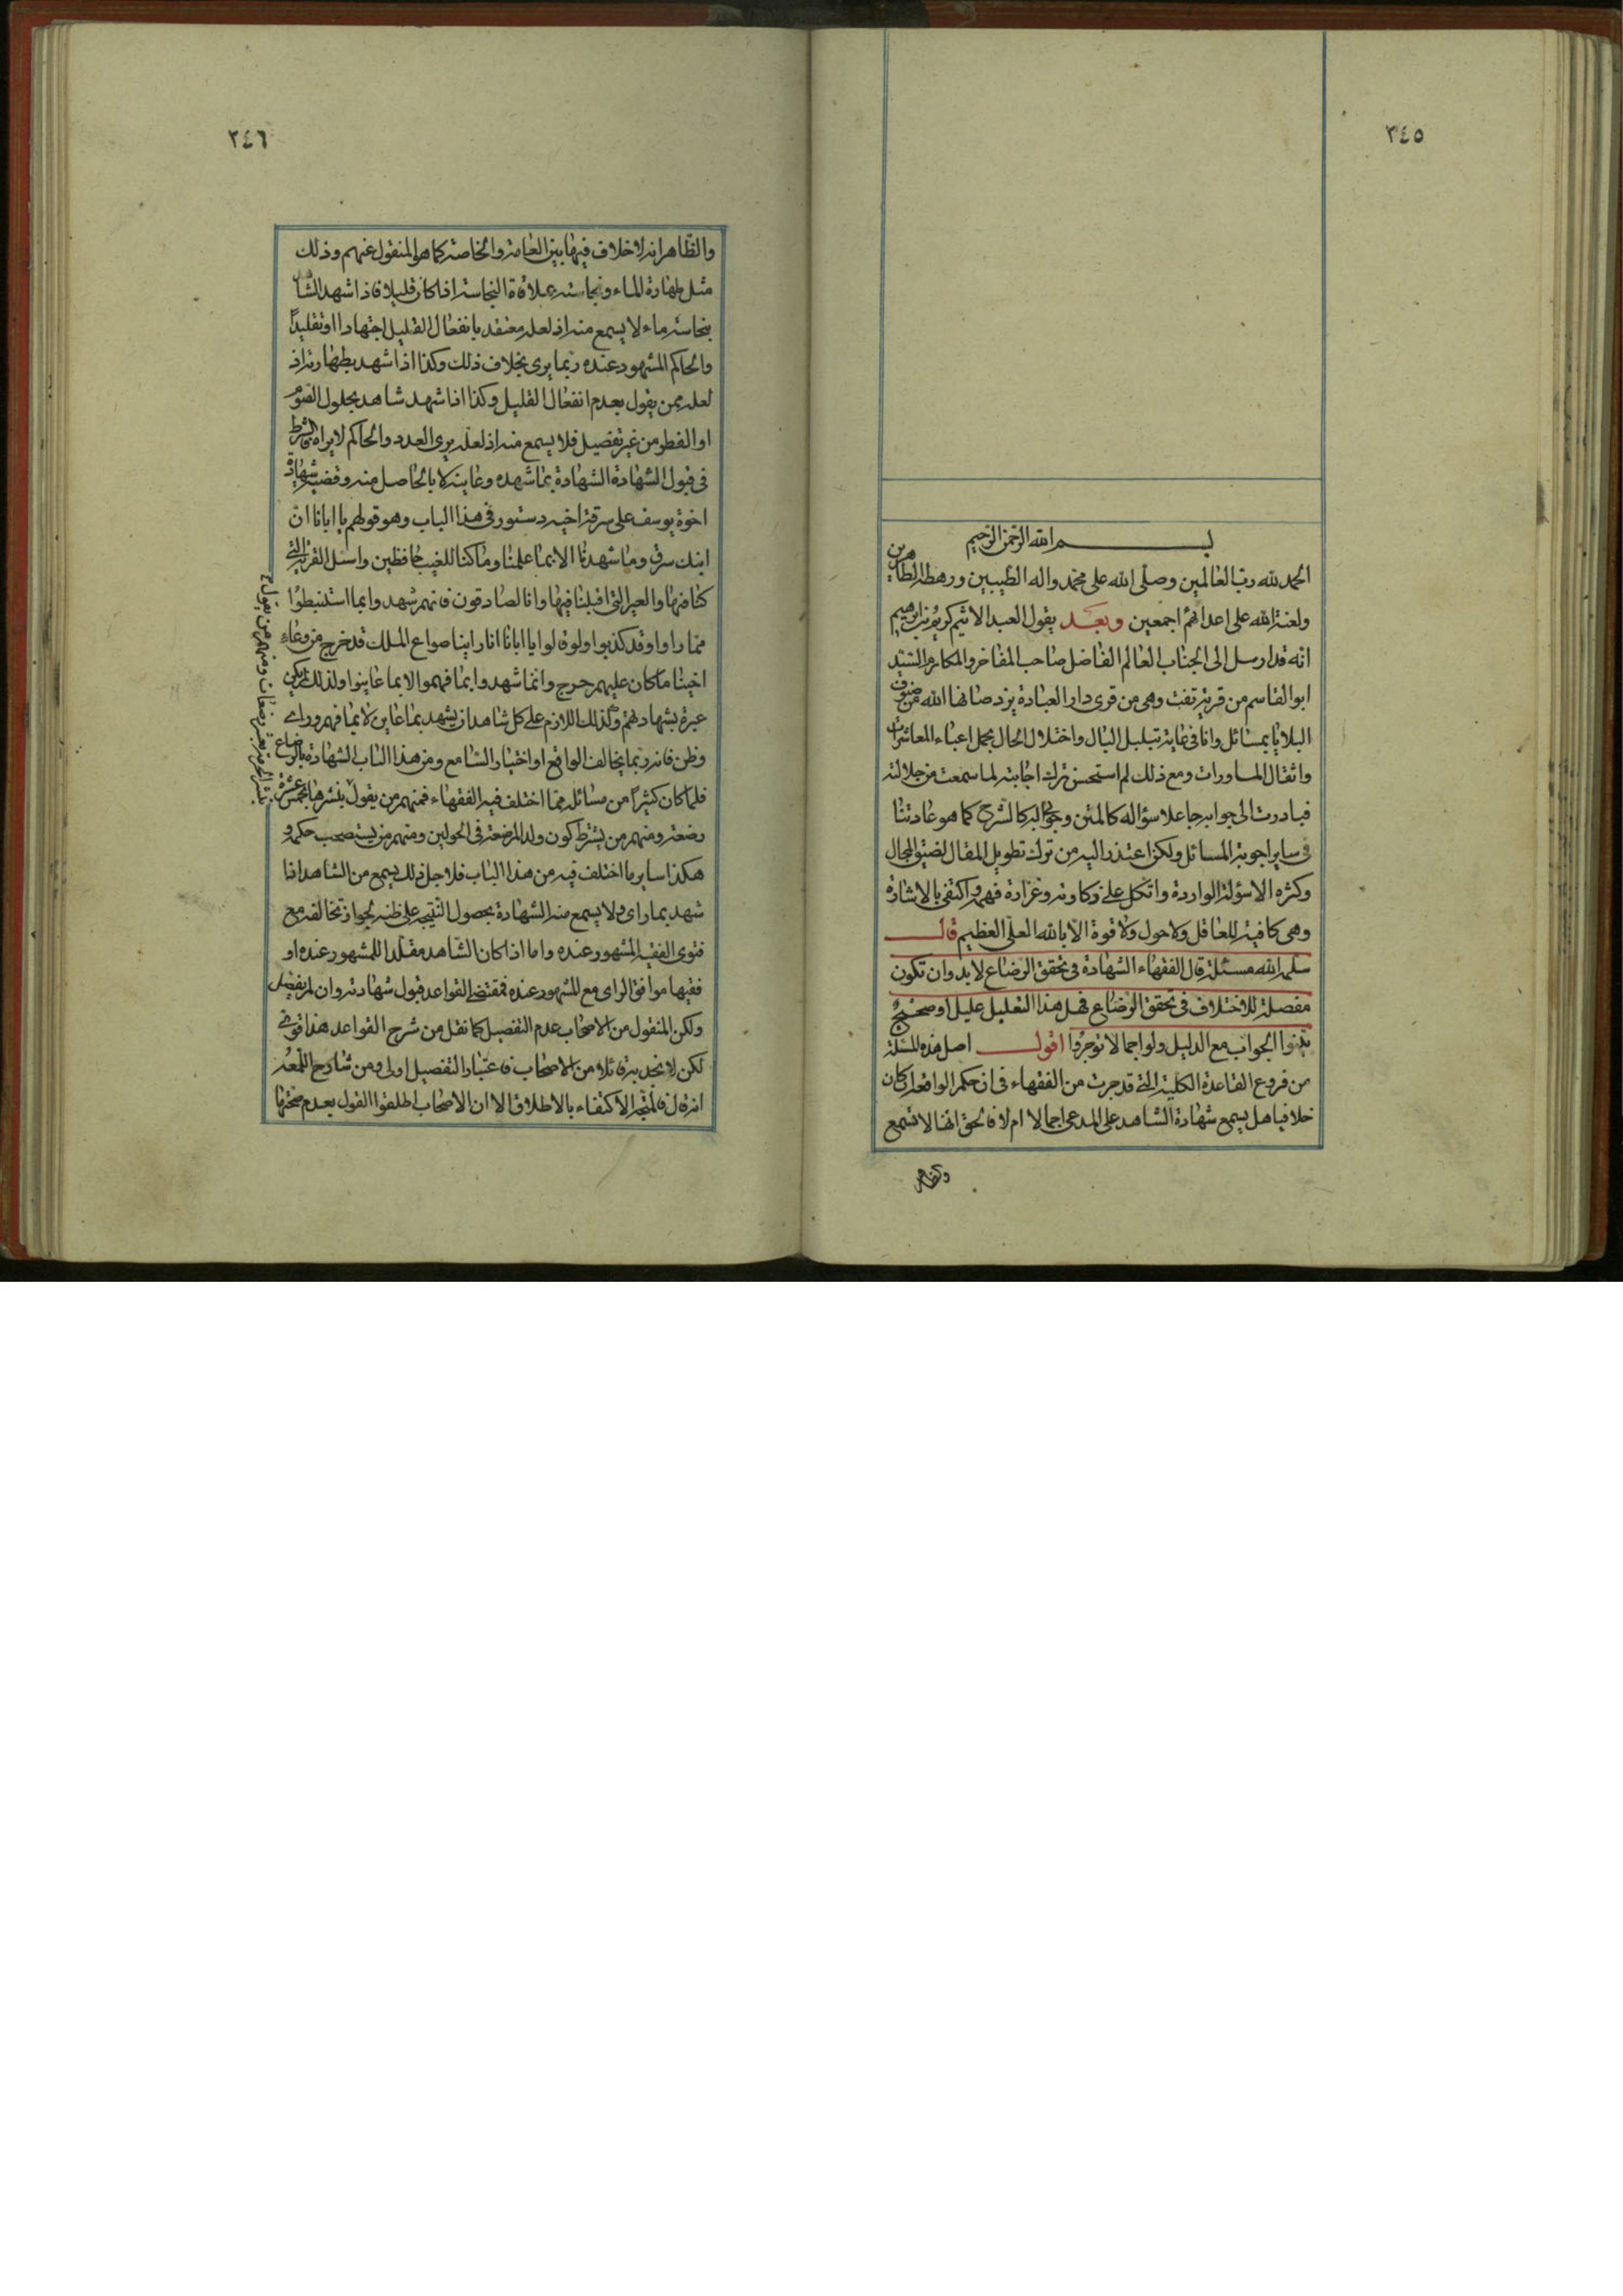 ٢٤٥
بسم الله الرحمن الرحيم
الحمد لله رب العالمين وصلى الله على محمد واله الطيبين ورهطه الطاهرين
ولعنة الله على اعدائهم اجمعين وبعد يقول العبد الاثيم كريم بن ابرهيم
انه قد ارسل الى الجناب العالم الفاضل صاحب المفاخر والمكارم السيد
ابو القاسم من قرية تفت وهى من قرى دار العبادة يزد صانها الله عن ضيوف
البلايا بمسائل وانا فى غاية تبلبل البال واختلال الحال بحمل اعباء المعاشرات
واثقال المساورات ومع ذلك لم استحسن ترك اجابته لما سمعت من جلالته
فبادرت الى جوابه جاعلا سؤاله كالمتن وجوابه كالشرح كما هو عادتنا
فى ساير اجوبة المسائل ولكن اعتذر اليه من ترك تطويل المقال لضيق المجال
وكثره الاسؤلة الواردة واتكل على ذكاوته وغزارة فهمه واكتفى بالاشارة
وهى كافية للعاقل ولا حول ولا قوة الا بالله العلى العظيم قال
سلمه الله مسئلة قال الفقهاء الشهادة فى تحقق الرضاع لا بد وان تكون
مفصلة للاختلاف فى تحقق الرضاع فهل هذا التعليل عليل او صحيح
بينوا الجواب مع الدليل ولو اجمالا توجروا اقول اصل هذه المسئلة
من فروع القاعدة الكلية التى قد جرت من الفقهاء فى ان حكم الواقعة ان كان
خلافيا هل يسمع شهادة الشاهد على المدعى اجمالا ام لا فالحق انها لا تسمع
والظاهر
٢٤٦
والظاهر انه لا خلاف فيها بين العامة والخاصة كما هو المنقول عنهم وذلك
مثل طهارة الماء ونجاسته بملاقاة النجاسة اذا كان قليلا فاذا شهد الشاهد
بنجاسة ماء لا يسمع منه اذ لعله معتقد بانفعال القليل اجتهادا او تقليداً
والحاكم المشهود عنده ربما يرى بخلاف ذلك وكذا اذا شهد بطهارته اذ
لعله ممن يقول بعدم انفعال القليل وكذا اذا شهد شاهد بحلول الصوم
او الفطر من غير تفصيل فلا يسمع منه اذ لعله يرى العدد والحاكم لا يراه فالشرط
فى قبول الشهادة الشهادة بما شهده وعاينه لا بالحاصل منه وقضية شهادة
اخوة يوسف على سرقة اخيه دستور فى هذا الباب وهو قولهم يا ابانا ان
ابنك سرق وما شهدنا الا بما علمنا وما كنا للغيب حافظين واسئل القرية التى
كنا فيها والعير التى اقبلنا فيها وانا لصادقون فانهم شهدوا بما استنبطوا
مما راوا وقد كذبوا ولو قالوا يا ابانا انا راينا صواع الملك قد خرج من وعاء
اخينا ما كان عليهم حرج وانما شهدوا بما فهموا لا بما عاينوا ولذلك لم يكن
عبرة بشهادتهم وكذلك اللازم على كل شاهد ان يشهد بما عاين لا بما فهم وراى
وظن فانه ربما يخالف الواقع او اختيار السامع ومن هذا الباب الشهادة بالرضاع
فلما كان كثيراً من مسائله مما اختلف فيه الفقهاء فمنهم من يقول بنشرها بخمس عشرة
رضعة ومنهم من يشترط كون ولد المرضعة فى الحولين ومنهم من يستصحب حكمه و
هكذا ساير ما اختلف فيه من هذا الباب فلاجل ذلك يسمع من الشاهد اذا
شهد بما راى ولا يسمع منه الشهادة بحصول النتيجه على ظنه لجواز تخالفه مع
فتوى الفقيه المشهور عنده واما اذا كان الشاهد مقلدا للمشهور عنده او
فقيها موافق الراى مع المشهور عنده فمقتضى القواعد قبول شهادته وان لم يفصل
ولكن المنقول من الاصحاب عدم التفصيل كما نقل من شرح القواعد هذا قوى
لكن لا نجد به قائلا من الاصحاب فاعتبار التفصيل اولى ومن شارح اللمعه
انه قال فالمتجه الاكتفاء بالاطلاق الا ان الاصحاب اطلقوا القول بعدم صحتها
بنشر الحرمة بعشر رضعات ومنهم من يقول